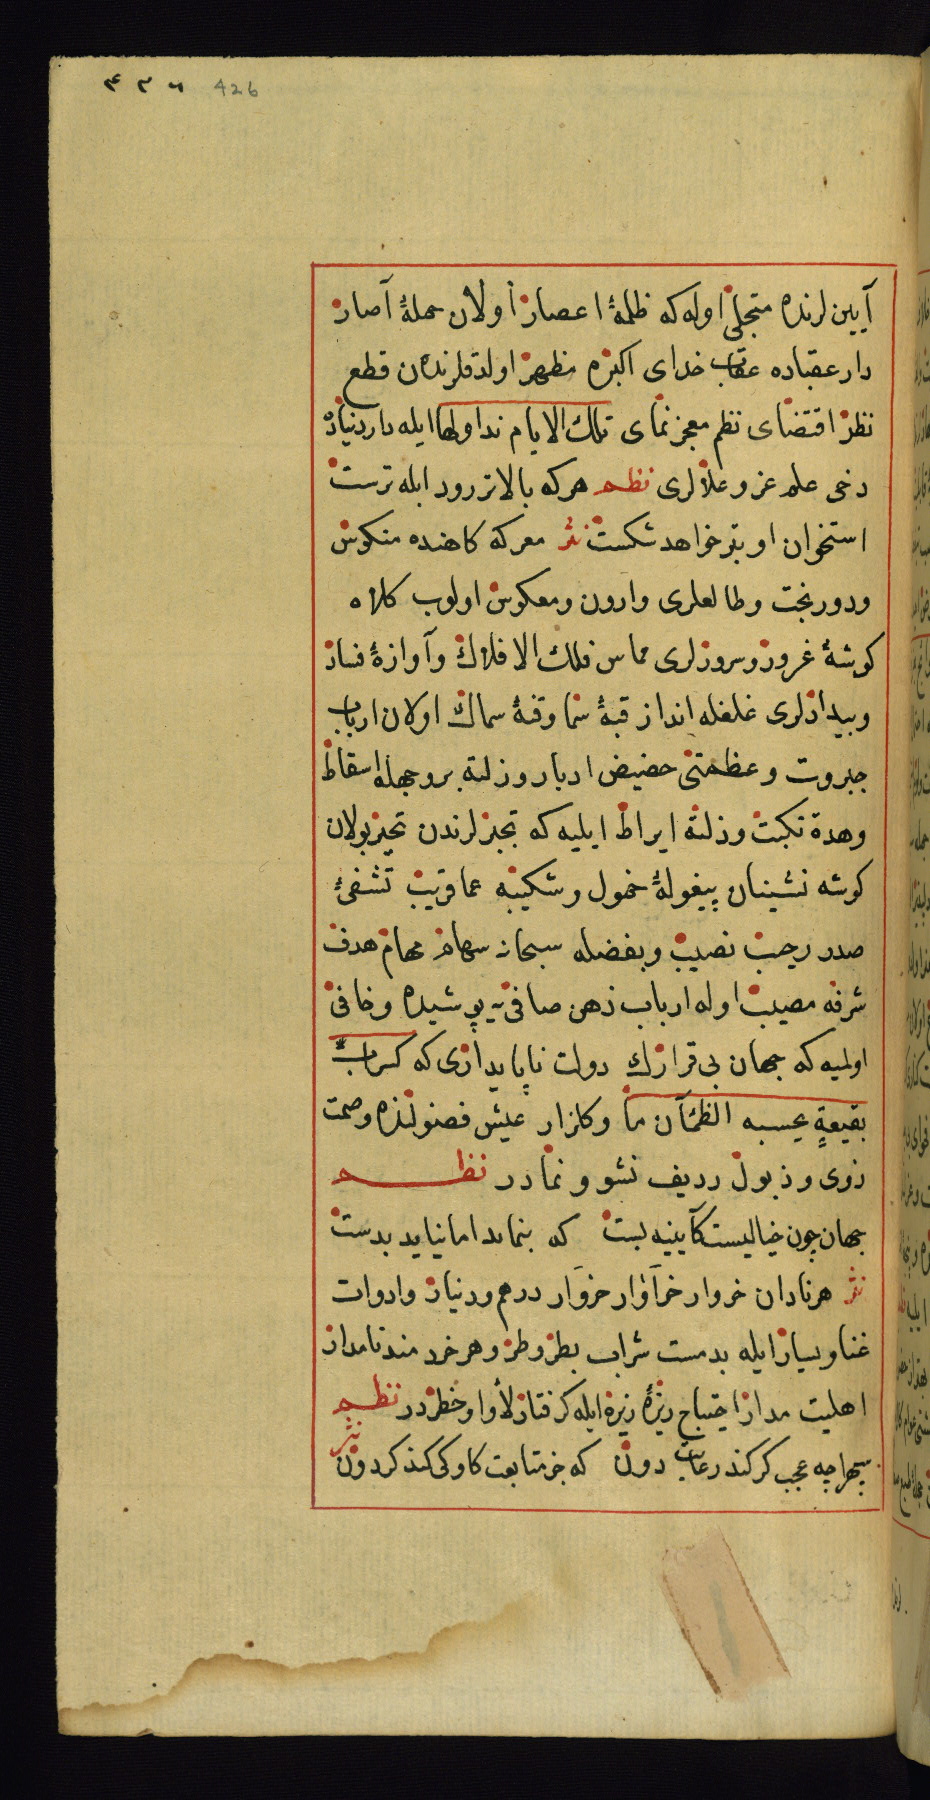 ٤٢٦ 426
آیین لرنده متجلی اوله که ظلمهٔ اعصار اولان حملهٔ آصار
دار عقباده عقاب خدای اکبره مظهر اولدقلرندن قطع
نظر اقتضای نظم معجز نمای تلك الایام نداولها ایله دار دنیاده
دخی علم عز و علالری نظم هرکه بالاتر رود ابله ترست
استخوان او بتر خواهد شکست نثر معرکه کاهنده منکوس
ودور بخت وطالعلری وارون ومعکوس اولوب کلاه
کوشهٔ غرور وسرورلری مماس فلك الافلاك وآوازهٔ فساد
وبیدادلری غلغله انداز قبهٔ سما وقفهٔ سماك اولان ارباب
جبروت وعظمتی حضیض ادبار وزلته بروجهله اسقاط
وهدهٔ نکبت وذلته ایراط ایلیه که تجبرلرندن تحیر بولان
کوشه نشینان پیغولهٔ خمول وشکیبه عما قریب تشفیٔ
صدر رحیب نصیب وبفضله سبحانه سهام مهام هدف
شرفه مصیب اوله ارباب ذهن صافی یه پوشیده وخافی
اولمیه که جهان بی قرارك دولت ناپایداری که کسراب
بقیعةٍ یحسبه الظمآن ما وکلزار عیش فصولنده وصمت
ذوی وذبول ردیف نشو ونمادر نظم
جهان چون خیالیست کآیینه بست که بنماید اما نیاید بدست
نثر هر نادان خروار خرآوار خروار درهم ودینار وادوات
غنا ویسار ایله بدمست شراب بطر وطر وهر خردمند نامدار
اهلیت مدار احتیاج ریزهٔ زیره ایله کرفتار لأوا وخطردر نظم
سپهرا چه عجب کر کند رعایت دون که جز متابعت کاو کی کند کردون نثر